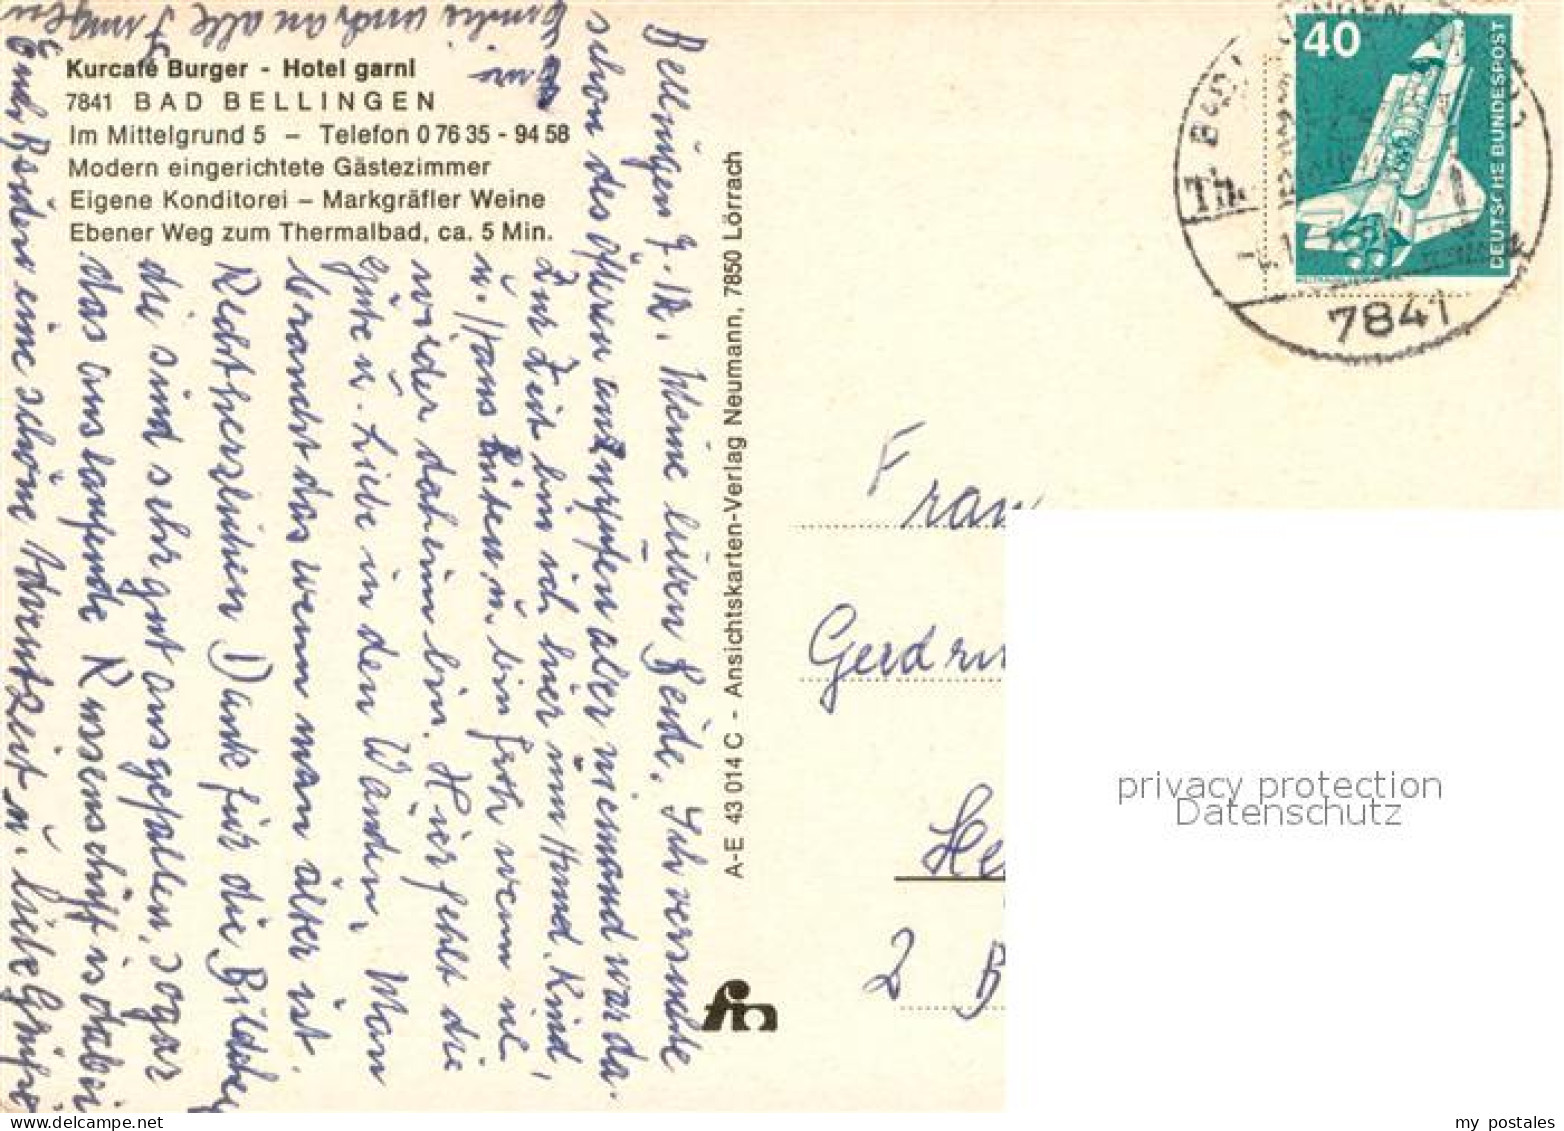 Kurcafé Burger - Hotel garni
7841 BAD BELLINGEN
Im Mittelgrund 5 – Telefon 0 76 35 - 94 58
Modern eingerichtete Gästezimmer
Eigene Konditorei – Markgräfler Weine
Ebener Weg zum Thermalbad, ca. 5 Min.
Bellingen 7. 12. Meine lieben Beide. Ich versuchte
schon des öfteren anzurufen aber niemand war da.
Zur Zeit bin ich hier mit Hund, Kind,
u. Hans hüten u. bin froh wenn ich
wieder daheim bin. Hier fehlt die
Güte u. Liebe in den Wänden, Man
braucht das wenn man älter ist.
Recht herzlichen Dank für die Bildchen
die sind sehr gut ausgefallen, sogar
das auslaufende Kissenschiff is dabei
Euch Beiden eine schöne Adventzeit u. liebe Grüße
an alle
A-E 43 014 C - Ansichtskarten-Verlag Neumann, 7850 Lörrach
fn
40
DEUTSCHE BUNDESPOST
7841
Frau
Gerdru
He
2 B
privacy protection
Datenschutz
my postales